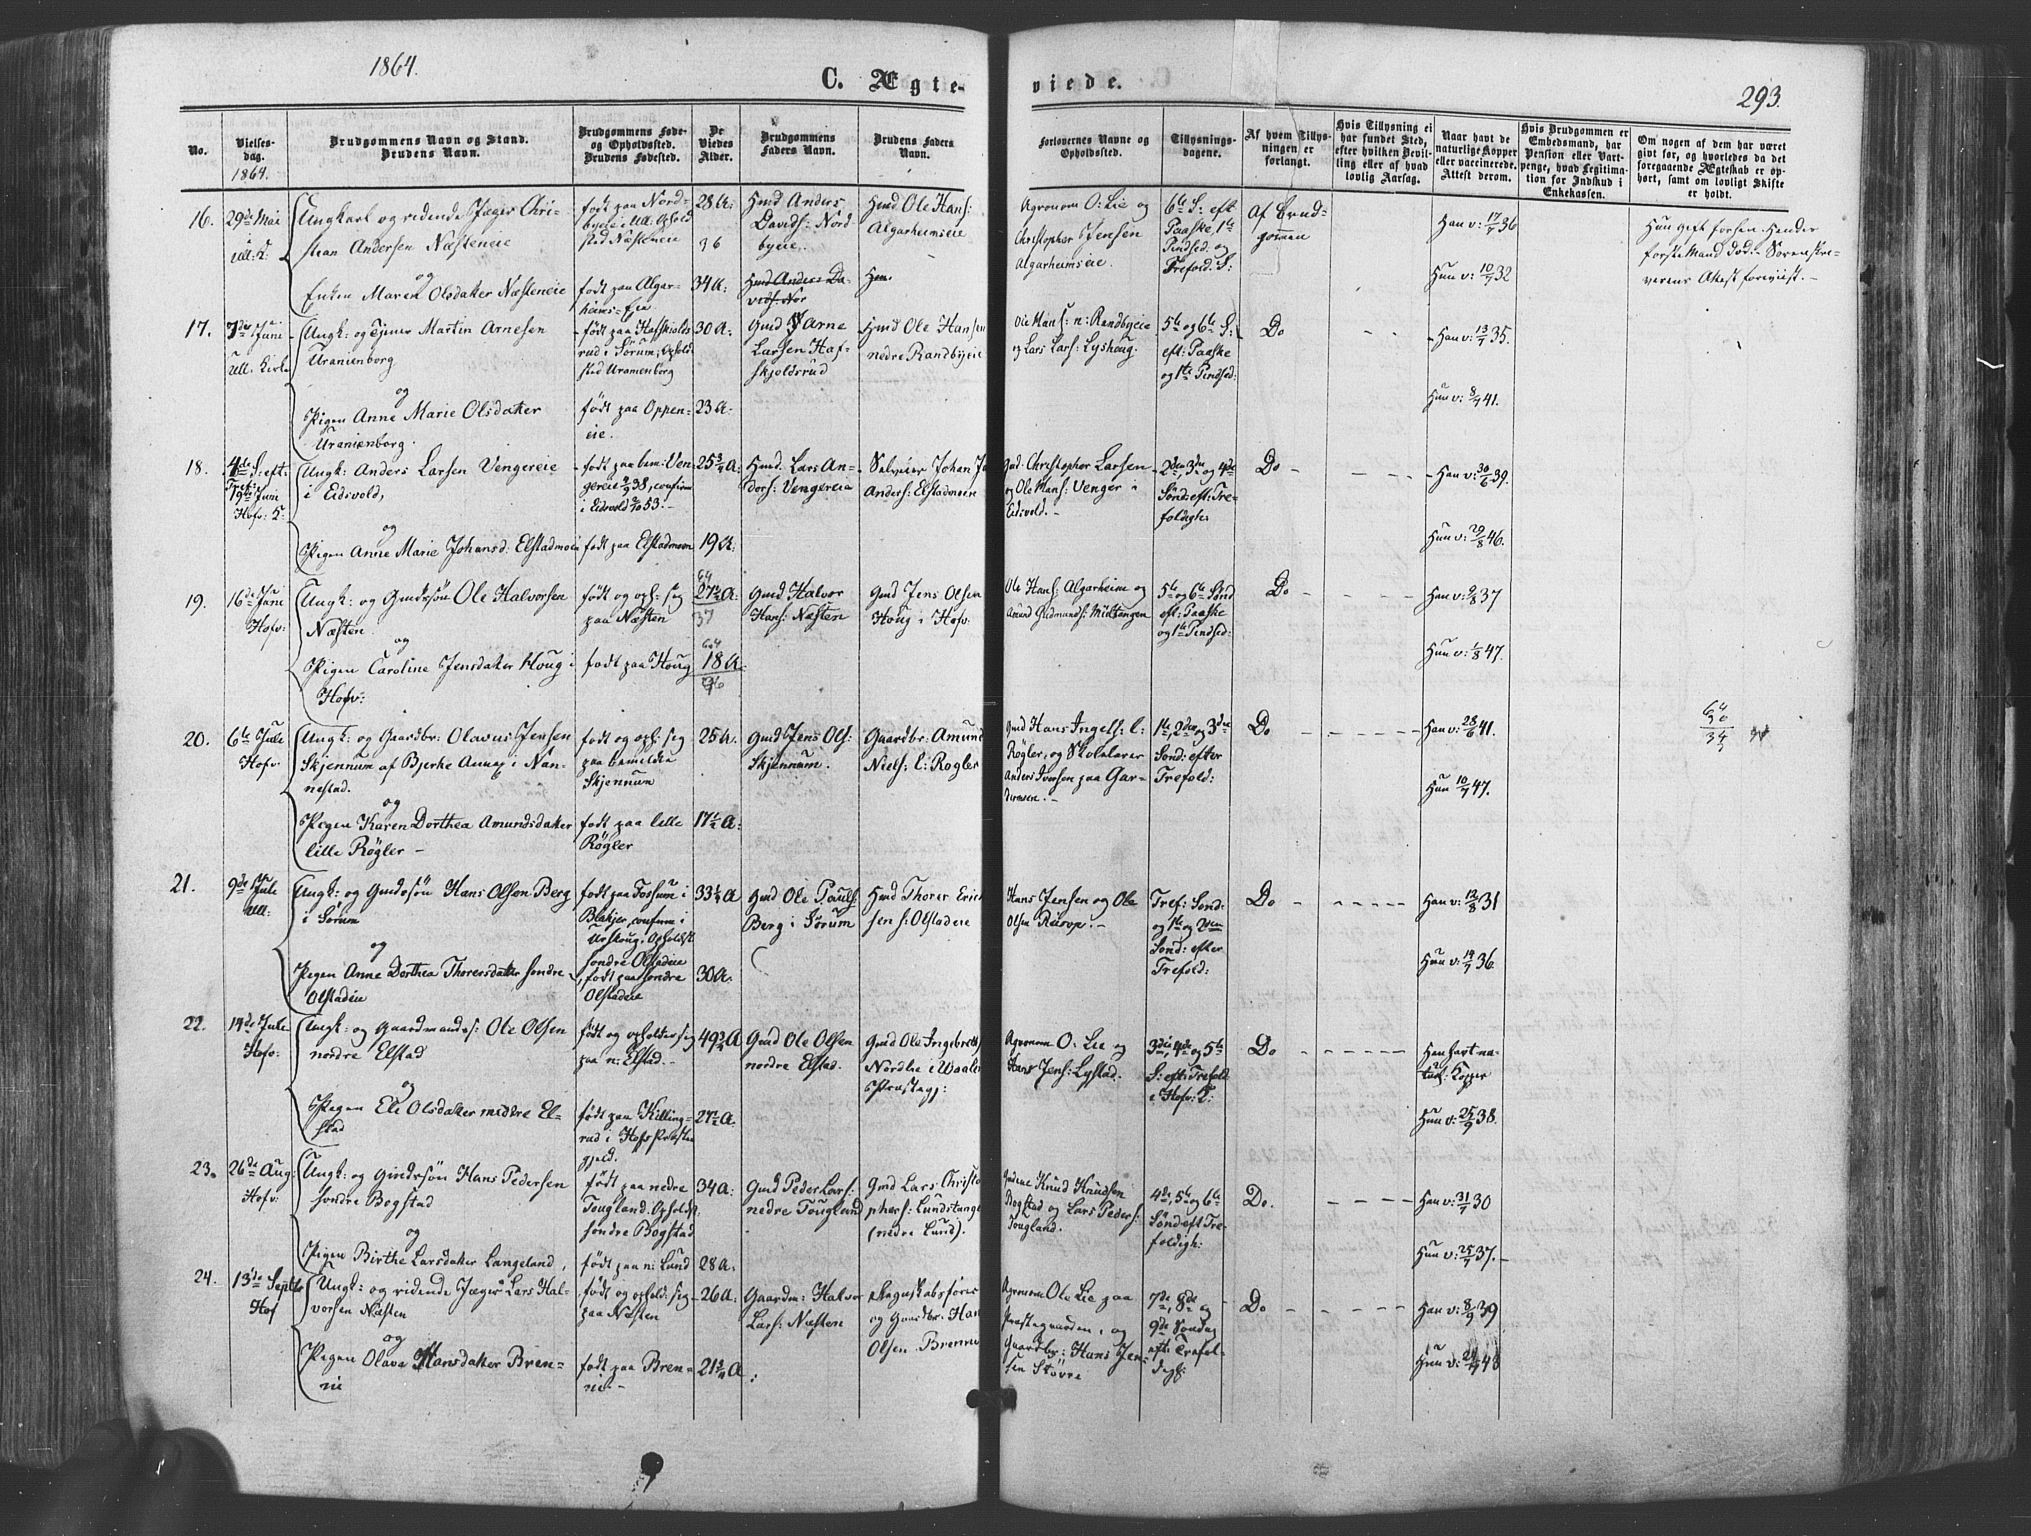 1864.
C. Ægte-
viede.
293.
No.
Vielses-
dag.
1864.
Brudgommens Navn og Stand.
Brudens Navn.
Brudgommens Føde-
og Opholdssted.
Brudens Fødested.
De
Viedes
Alder.
Brudgommens
Faders Navn.
Brudens Faders
Navn.
Forlovernes Navne og
Opholdssted.
Tillysnings-
dagene.
Af hvem Tillys-
ningen er
forlangt.
Hvis Tillysning ei
har fundet Sted,
efter hvilken Bevil-
ling eller af hvad
lovlig Aarsag.
Naar havt de
naturlige Kopper
eller vaccinerede.
Attest derom.
Hvis Brudgommen er
Embedsmand, har
Pension eller Vart-
penge, hvad Legitima-
tion for Indskud i
Enkekassen.
Om nogen af dem har været
givt før, og hvorledes da det
foregaaende Ægteskab er op-
hørt, samt om lovligt Skifte
er holdt.
16.
29de Mai
i
Ull: K:
Ungkarl og ridende Jæger Chri-
stian Andersen Næsteneie
og
Enken Maren Olsdatter Næsteneie
født paa Nord-
byeie i Ull. Ophold
sted Næsteneie
født paa Algar-
heims-Eie
28 A:
36
34 A:
Hmd Anders
Davids: Nord
byeie
Hmd Anders Da-
vids: Nor
Hmd Ole Hans:
Algarheimseie
Hm.
Agronom O: Lie og
Christopher Jensen
Algarheimseie.
6te S: eft
Paaske, 1ste
Pindsed: og
Trefold: S:
Af Brud-
gommen
Han v: 17/7 36
Hun v: 10/7 32
Hun gift forhen. Hendes
første Mand død. Sorenskri-
verens Attest foreviist. -
17.
7de Juni
Ull. Kirke
Ungk: og Tjener Martin Arnesen
Uranienborg
og
Pigen Anne Marie Olsdatter
Uranienborg.
født paa Hafskjolds
rud i Sørum, Ophold
sted Uranienborg
født paa Oppen-
eie.
30 A:
23 A:
Gmd Arne
Larsen Haf-
skjoldsrud
Hmd Ole Hansen
nedre Randbyeie
Ole Hans: n: Randbyeie
og Lars Lars: Lyshoug.
5te og 6te S:
eft: Paaske
og 1ste Pindsed:
Do
Han v: 13/7 35.
Hun v: 8/7 41.
18.
4de S: eft:
Tref:
19de Juni
Hofv: K:
Ungk: Anders Larsen Vengereie
i Eidsvold,
og
Pigen Anne Marie Johansd: Elstadmoen
født paa bem: Ven-
gereie 4/9 38, confirm
i Eidsvold 2/10 53. -
født paa Elstadmoen
25 3/4 A:
19 A:
Hmd: Lars An-
ders: Vengereie
Selveier Johan
Anders: Elstadmoen
Gmd: Christopher Larsen
og Ole Hans: Venger i
Eidsvold. -
2den, 3die og 4de
Sønd: eft: Tre-
foldigh:
Do
Han v: 30/6 39.
Hun v: 29/8 46.
19.
16de Juni
Hofv:
Ungk: og Gmdssøn Ole Halvorsen
Næsten.
og
Pigen Caroline Jensdatter Houg i
Hofv:
født og oph: sig
paa Næsten
født paa Houg
64
27 1/2 A:
37
64
18 A.
46
Gmd Halvor
Hans: Næsten
Gmd Jens Olsen
Houg i Hofv:
Ole Hans: Algarheim og
Amund Gudmunds: Midtangen
5te og 6te Sønd
eft: Paaske
og 1ste Pindsed:
Do
Han v: 9/8 37
Hun v: 1/8 47.
20.
6te Jule
Hofv:
Ungk: og Gaardbr: Olavus Jensen
Skjennum af Bjerke Annex i Nan-
nestad.
og
Pigen Karen Dorthea Amundsdatter
lille Røgler -
født og oph: sig
paa bemeldte
Skjennum
født paa lille
Røgler
25 A:
17 1/2 A:
Gmd Jens Ols:
Skjennum.
Gaardbr: Amund
Niels: l: Rogler
Gmd Hans Ingels: l:
Rogler, og Skolelærer
Anders Iversen paa Gar-
dermoen. -
1ste, 2den og 3die
Sønd: efter
Trefold:
Do
Han v: 28/6 41.
Hun 10/7 47.
64
30
34
21.
9de Jule
Ull:
Ungk: og Gmdssøn Hans Olsen Berg
i Sørum
og
Pigen Anne Dorthea Thoresdatter søndre
Olstadeie
født paa Fossum i
Blakjer, confirm i
Urskoug. Opholdst
søndre Olstadeie
født paa søndre
Olstadeie
33 1/4 A
30 A:
Gmd Ole Pauls:
Berg i Sørum
Hmd Thorer Erick
sen s: Olstadeie
Hans Jensen og Ole
Olsen Risop. -
Tref: Sønd:
og 1ste og 2den
Sønd: efter
Trefold:
Do
Han v: 12/8 31
Hun v: 14/7 36.
22.
14de Jule
Hofv:
Ungk: og Gaardmands: Ole Olsen
nordre Elstad
og
Pigen Eli Olsdatter nedre El-
stad
født og opholder sig
paa n: Elstad. -
født paa Killing-
rud i Hofs Præste
gjeld.
49 3/4 A
27 1/2 A.
Gmd Ole Olsen
nordre Elstad.
Gmd Ole Ingebrets:
Nordlie i Waaler
Præstegj:
Agronom O: Lie og
Hans Jens: Lystad.
3die, 4de og 5te
S: eft: Trefold
i Hofv: K:
Do
Han havt na-
turl: Kopper
Hun v: 25/9 38.
23.
26de Aug
Hofv:
Ungk: og Gmdssøn Hans Pedersen
søndre Bogstad
og
Pigen Birthe Larsdatter Langeland,
født paa nedre
Tougland. Opholdst:
søndre Bogstad
født paa n: Lund
34 A:
28 A:
Gmd Peder Lars:
nedre Tougland
Gmd Lars Christo
phers: Lundstangen
(nedre Lund).
Gmdene Knud Knudsen
Bogstad og Lars Peders:
Tougland.
4de, 5te og 6te
Sønd eft Tre-
foldigh:
Do.
Han v: 31/7 30
Hun v: 25/7 37. -
24.
13de Septbr
Hof
Ungk: og ridende Jæger Lars Hal-
vorsen Næsten
og
Pigen Olava Hansdatter Bren-
ni
født og ophold: sig
paa Næsten
født paa Bren-
ni. -
26 A:
21 3/4 A
Gaardm: Halvor
Lars: Næsten
Regnskabsfører
og Gaardbr: Hans
Olsen Brenni
Agronom Ole Lie paa
Præstegaarden, og
Gaardbr: Hans Jen-
sen Støvre
7de, 8de og
9de Søndag
eft: Trefol-
digh:
Do
Han v: 8/9 39
Hun v: 24/7 48